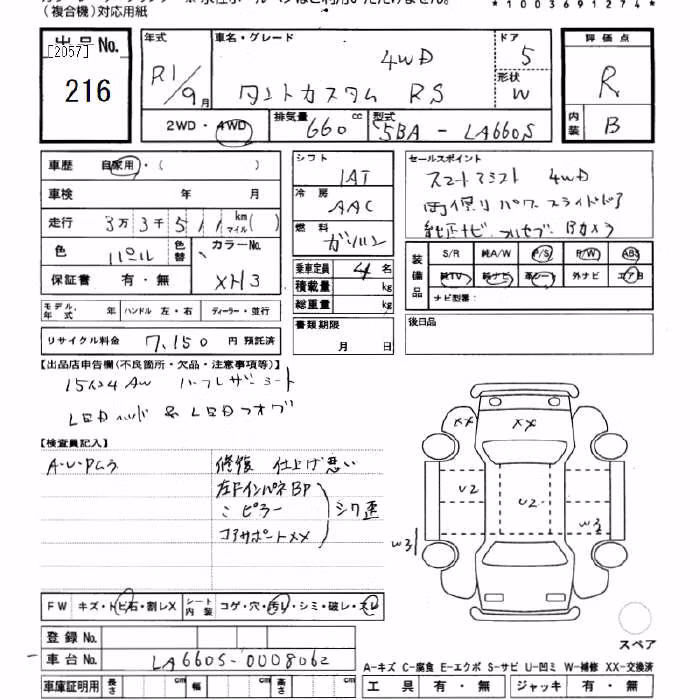 （複合機）対応用紙
*1003691274*
出品No.
[2057]
216
年式
R1/9月
車名・グレード
4WD
タントカスタム RS
ドア
5
形状
W
評価点
R
内装
B
2WD・4WD
排気量
660 cc
型式
5BA-LA660S
車歴 自家用・（ ）
車検 年 月
走行 3万3千511 km マイル( )
色
パール
色替
カラーNo.
XH3
保証書 有・無
シフト
IAT
冷房
AAC
燃料
ガソリン
乗車定員 4名
積載量 kg
総重量 kg
書類期限
月 日
セールスポイント
スマートアシスト 4WD
両側パワースライドドア
純正ナビ フルセグ Bカメラ
装備品
S/R 純A/W P/S P/W ABS
純TV 純ナビ 革シート 外ナビ エアB
ナビ型番：
後日品
モデル年式 年 ハンドル 左・右 ディーラー・並行
リサイクル料金 7,150 円 預託済
【出品店申告欄(不良箇所・欠品・注意事項等)】
15インチAW ハーフレザーシート
LEDヘッド & LEDフォグ
【検査員記入】
A・U・Pムラ
修復 仕上げ悪い
左Fインパネ BP
〃 ピラー
シワ歪
コアサポートXX
XX
XX
U2
U2
W3
W3
FW キズ・トビ石・割レX
シート内装 コゲ・穴・汚レ・シミ・破レ・スレ
登録No.
車台No. LA660S-0008062
車庫証明用 長さ cm 幅 cm 高さ cm
スペア
A-キズ C-腐食 E-エクボ S-サビ U-凹ミ W-補修 XX-交換済
工具 有・無 ジャッキ 有・無